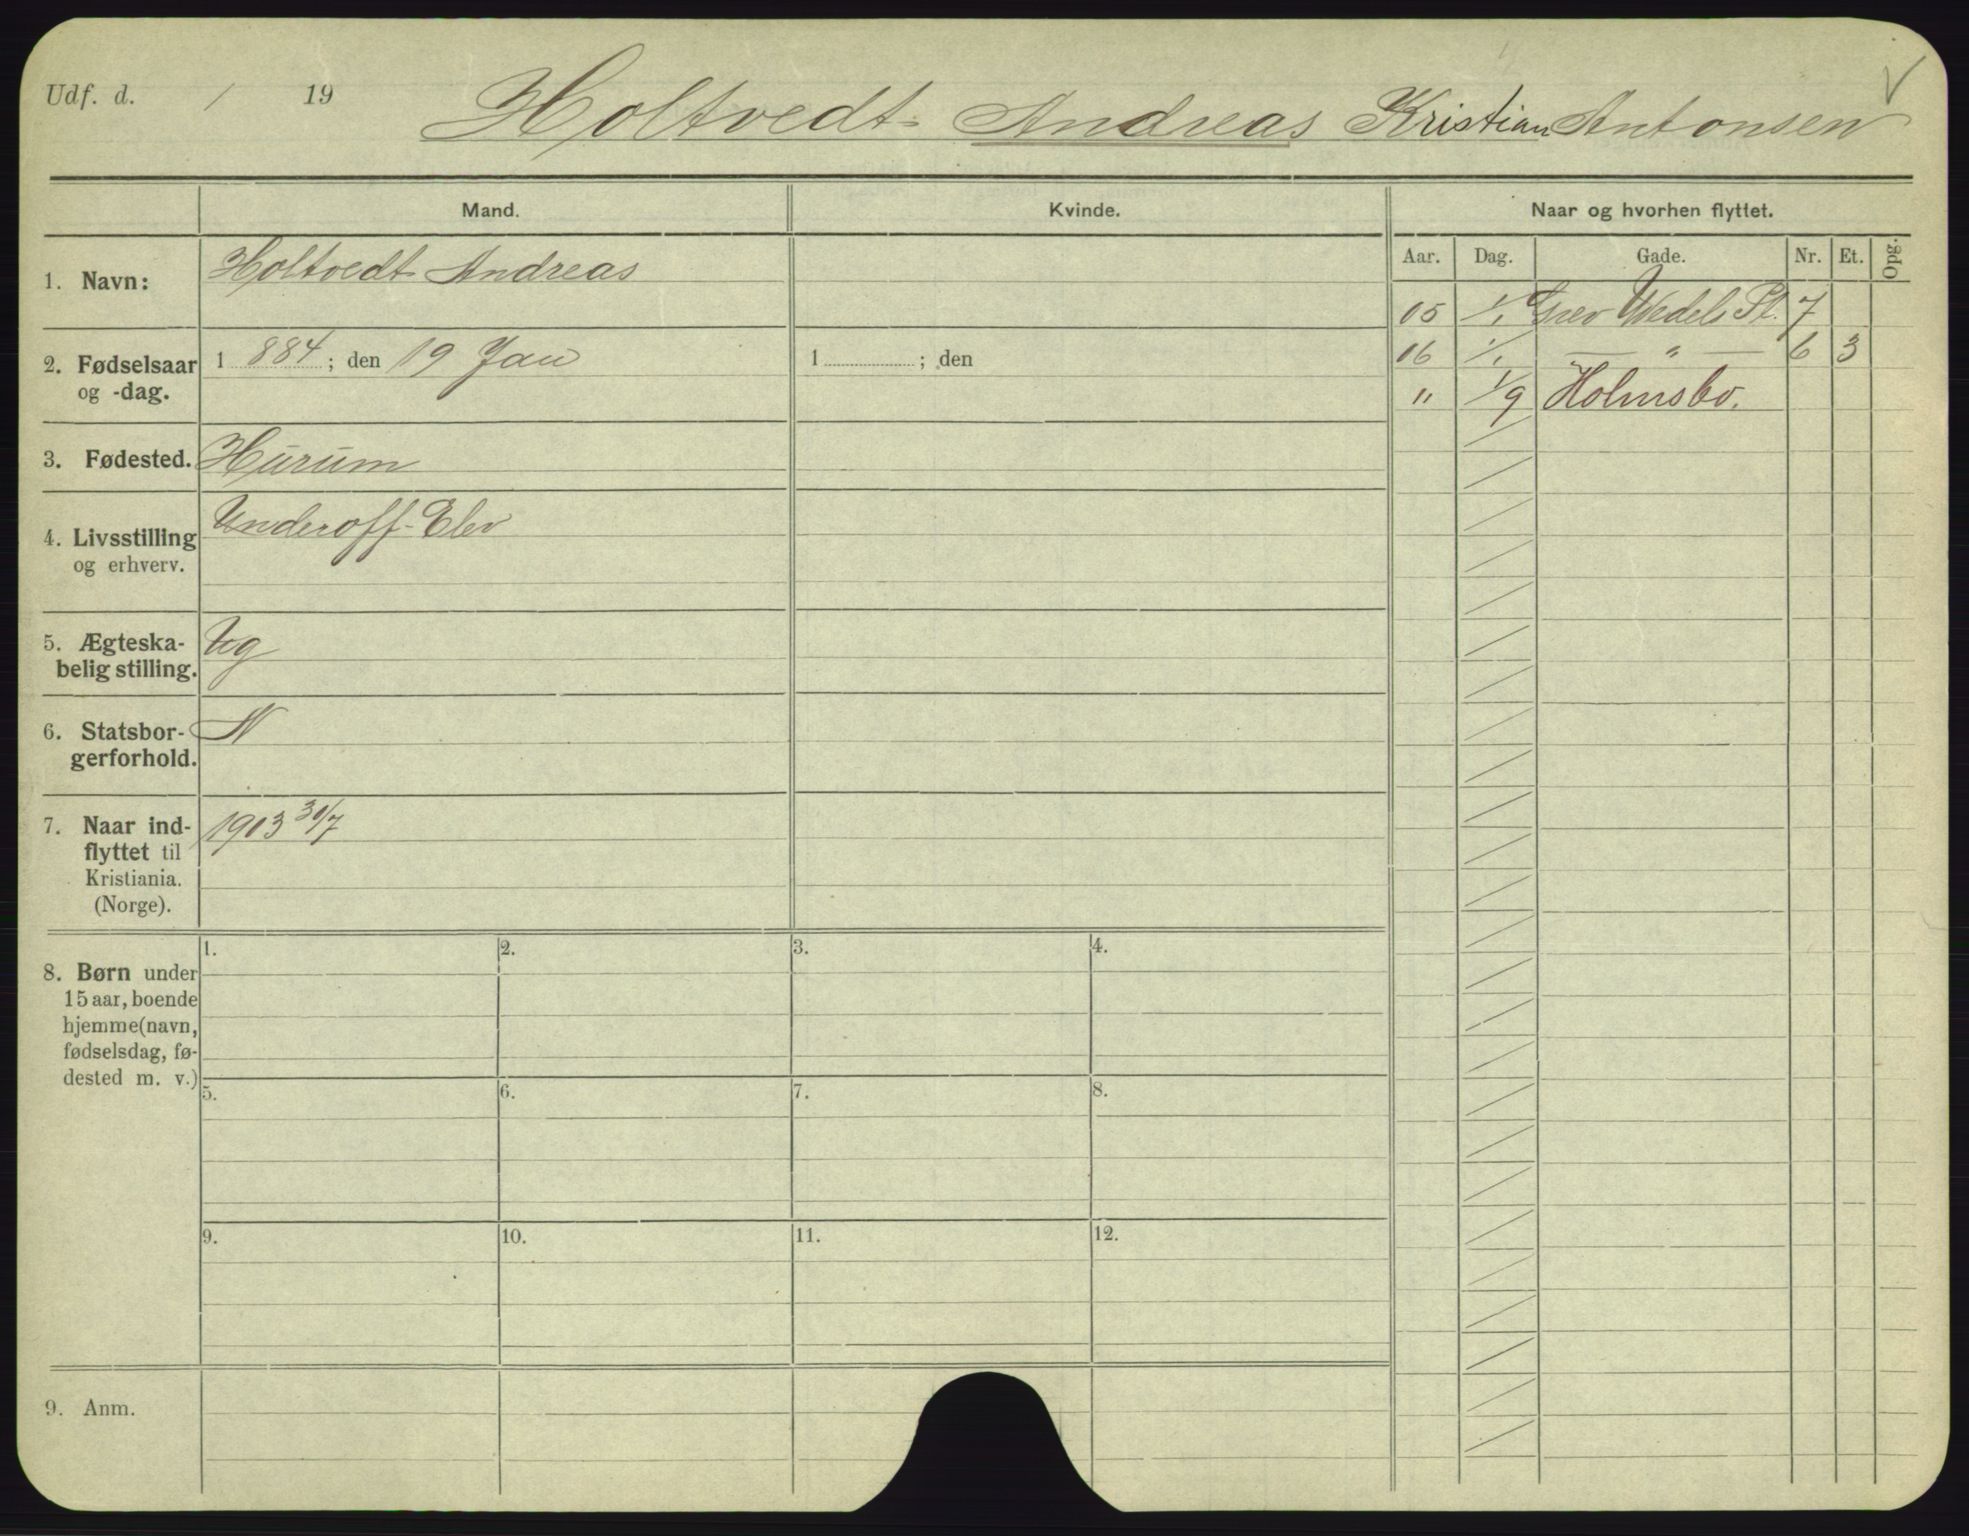 Udf. d. / 19
Holtvedt Andreas Kristian Antonsen
Mand. Kvinde. Naar og hvorhen flyttet.
Aar. Dag. Gade. Nr. Et. Opg.
1. Navn: Holtvedt Andreas
05 1/1 Grev Wedels Pl. 7
06 1/1 — " — 6 3
" 1/9 Holmsbo.
2. Fødselsaar og -dag. 1 884 ; den 19 Jan 1 ; den
3. Fødested. Hurum
4. Livsstilling og erhverv. Underoff-Elev
5. Ægteska-
belig stilling. Ug
6. Statsbor-
gerforhold. N
7. Naar ind-
flyttet til
Kristiania.
(Norge).
1903 30/7
8. Børn under
15 aar, boende
hjemme (navn,
fødselsdag, fø-
dested m. v.)
1. 2. 3. 4.
5. 6. 7. 8.
9. 10. 11. 12.
9. Anm.